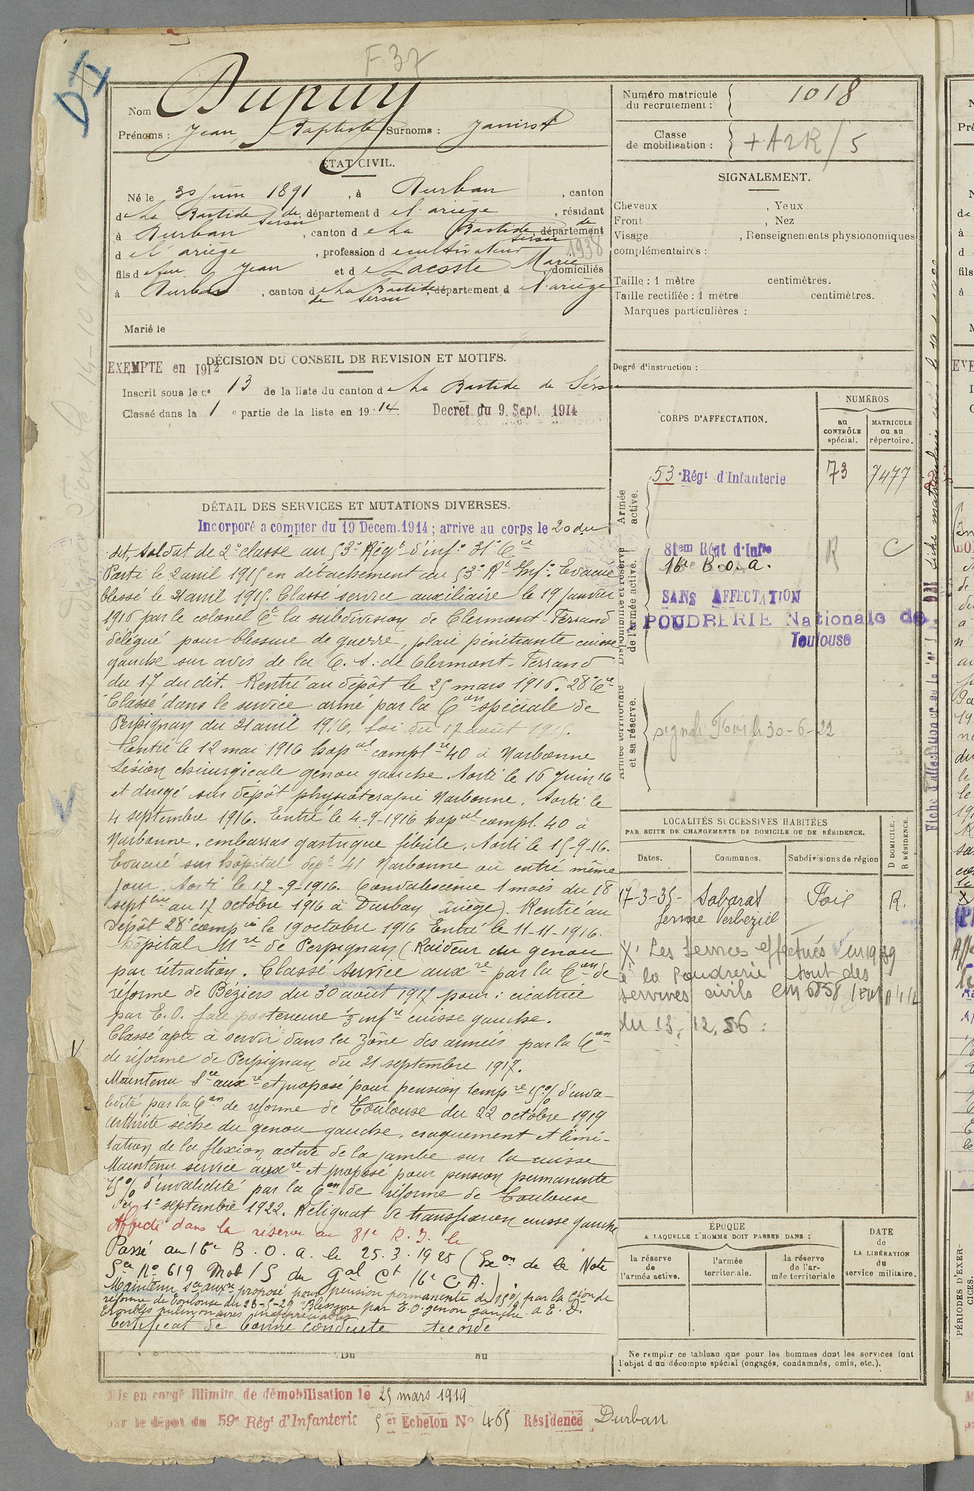 F 37
DII
Nom Dupuy
Prénoms : Jean Baptiste Surnoms :
Numéro matricule du recrutement : 1018
Classe de mobilisation :
ÉTAT CIVIL.
Né le 30 Juin 1891, à Durban, canton
de La Bastide de Sérou, département de l'ariège, résidant
à Durban, canton de La Bastide de Sérou, département
d e l'ariège, profession de cultivateur
1938
fils de feu Jean et de Lacoste Marie, domiciliés
à Durban, canton de La Bastide de Serou, département de l'ariège
Marié le
SIGNALEMENT.
Cheveux , Yeux
Front , Nez
Visage , Renseignements physionomiques
complémentaires :
Taille : 1 mètre centimètres.
Taille rectifiée : 1 mètre centimètres.
Marques particulières :
Degré d'instruction :
DÉCISION DU CONSEIL DE REVISION ET MOTIFS.
EXEMPTE en 1912
Inscrit sous le n° 13 de la liste du canton de La Bastide de Sérou
Classé dans la 1e partie de la liste en 1914. Decret du 9. Sept. 1914
CORPS D'AFFECTATION.
NUMÉROS
au CONTRÔLE spécial.
MATRICULE ou au répertoire.
Armée active.
53e Régt d'Infanterie 73 7477
Disponibilité et réserve de l'armée active.
81em Régt d'Infie R C
16e B.O.a.
SANS AFFECTATION
POUDRERIE Nationale de
Toulouse
Armée territoriale et sa réserve.
30-6-22
DÉTAIL DES SERVICES ET MUTATIONS DIVERSES.
Incorporé a compter du 19 Decem. 1914 ; arrive au corps le 20 du
dit, soldat de 2e classe au 53e Régt d'infie 31e Cie
Parti le 2 avril 1915 en détachement au 53e Rt Infie Evacué
blessé le 21 avril 1915. Classé service auxiliaire le 19 janvier
1916 par le colonel Ct la subdivision de Clermont-Ferrand
délégué pour blessure de guerre, plaie pénétrante cuisse
gauche sur avis de la C. S. de Clermont-Ferrand
du 17 du dit. Rentré au dépôt le 25 mars 1916. 28e Cie
Classé dans le service armé par la Con spéciale de
Perpignan du 21 avril 1916, Loi du 17 août 1915.
Entré le 12 mai 1916 hopital complre 40 à Narbonne
Lésion chirurgicale genou gauche. Sorti le 16 Juin 16
et dirigé sur dépôt physioterapie Narbonne. Sorti le
4 septembre 1916. Entré le 4-9-1916 hopital compl. 40 à
Narbonne, embarras gastrique fébrile. Sorti le 15-9-16.
Evacué sur hôpital dept 41 Narbonne où entré même
jour. Sorti le 17-9-1916. Convalescence 1 mois du 18
septbre au 17 octobre 1916 à Durban (Ariège). Rentré au
dépôt 28e compie le 19 octobre 1916 Entré le 11-11-1916.
hôpital Mre de Perpignan (Raideur du genou
par rétraction. Classé service auxre par la Con de
réforme de Béziers du 30 août 1917 pour : cicatrice
par E.O. face posterieure 1/3 infre cuisse gauche.
Classé apte à servir dans la zône des armées par la Con
de réforme de Perpignan du 21 septembre 1917.
Maintenu Sce auxre et proposé pour pension tempre 15% d'inva-
lidité par la Con de réforme de Toulouse du 22 octobre 1919
arthrite sèche du genou gauche, craquement et limi-
tation de la flexion active de la jambe sur la cuisse
Maintenu service auxre et proposé pour pension permanente
15% d'invalidité par la Con de réforme de Toulouse
du 1er septembre 1922. Reliquat de transfixion cuisse gauche
Affecté dans la réserve au 81e R. I. le
Passé au 16e B. O. A. le 25.3.1925 (Exon de la Note
Sce No 619 Mob/S du Gal Ct 16e C.A.)
Maintenu Sce auxre proposé pour pension permanente de 15% par la Con de
réforme de Toulouse du 28-5-29 Blessure par E.O. genou gauche
Certificat de bonne conduite accordé
LOCALITÉS SUCCESSIVES HABITÉES
PAR SUITE DE CHANGEMENTS DE DOMICILE OU DE RÉSIDENCE.
Dates. Communes. Subdivisions de région D DOMICILE. R RÉSIDENCE.
17-3-35- Sabarat Foix R.
ferme Verbeziel
X Les services effectués en 1939
à la Poudrerie sont des
services civils
du 13.12.56.
ÉPOQUE
A LAQUELLE L'HOMME DOIT PASSER DANS :
la réserve de l'armée active.
l'armée territoriale.
la réserve de l'armée territoriale
DATE de LA LIBÉRATION du service militaire.
Ne remplir ce tableau que pour les hommes dont les services font
l'objet d'un décompte spécial (engagés, condamnés, omis, etc.).
Du au
Mis en congé illimité de démobilisation le 25 mars 1919
par le dépôt du 59e Rég d'Infanterie 5e Echelon No 465 Résidence Durban
PÉRIODES D'EXERCICES.